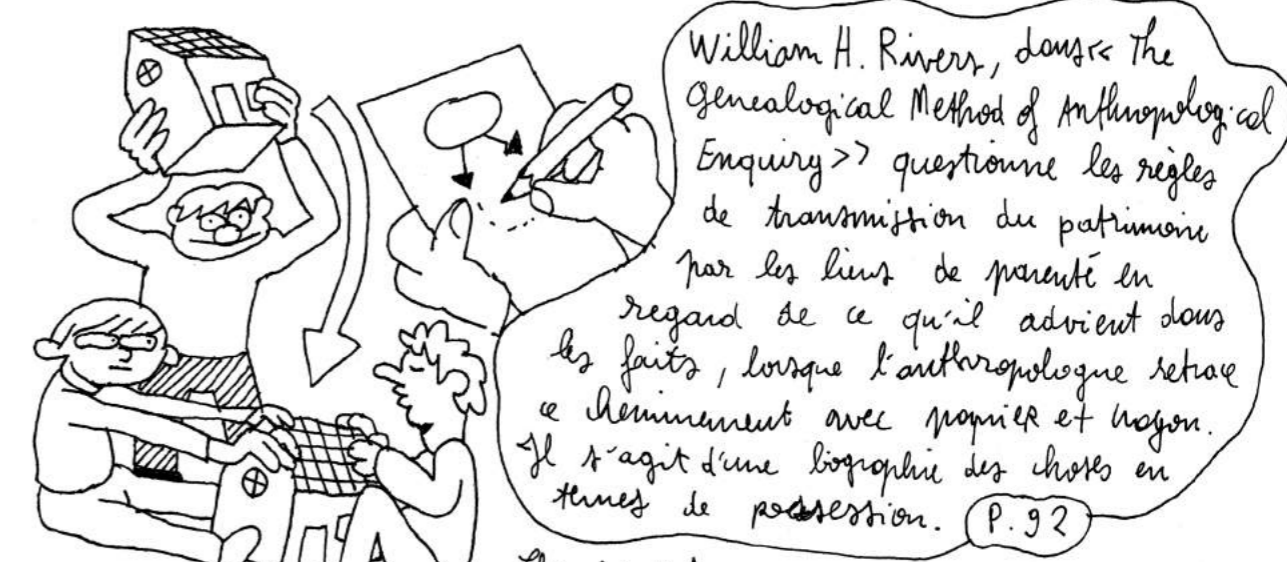 William H. Rivers, dans << The
Genealogical Method of Anthropological
Enquiry >> questionne les règles
de transmission du patrimoine
par les liens de parenté en
regard de ce qu'il advient dans
les faits, lorsque l'anthropologue retrace
ce cheminement avec papier et crayon.
Il s'agit d'une biographie des choses en
termes de possession.
P. 92